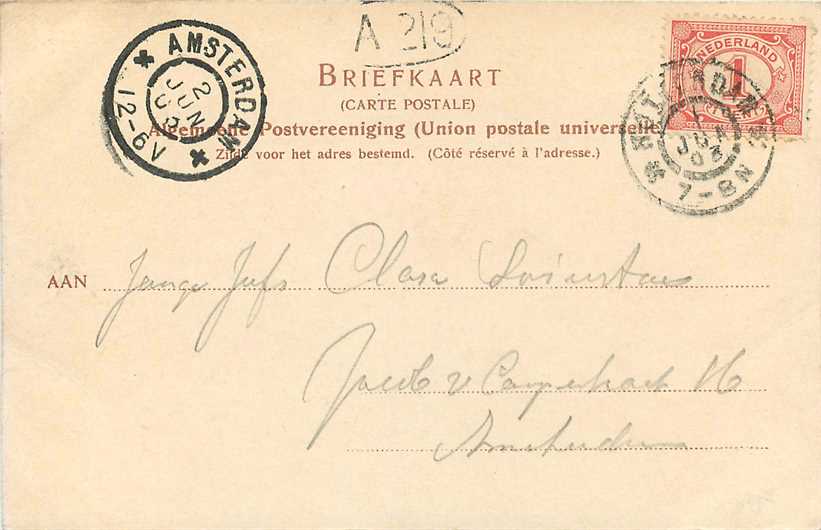 A 219
NEDERLAND
1
AMSTERDAM
2
JUN
03
12-6V
BRIEFKAART
(CARTE POSTALE)
Algemeene Postvereeniging (Union postale universelle)
Zijde voor het adres bestemd. (Côté réservé à l'adresse.)
JUN
03
7-8N
AAN Jonge Jufr Clara
Jacob v Campenstraat 16
Amsterdam